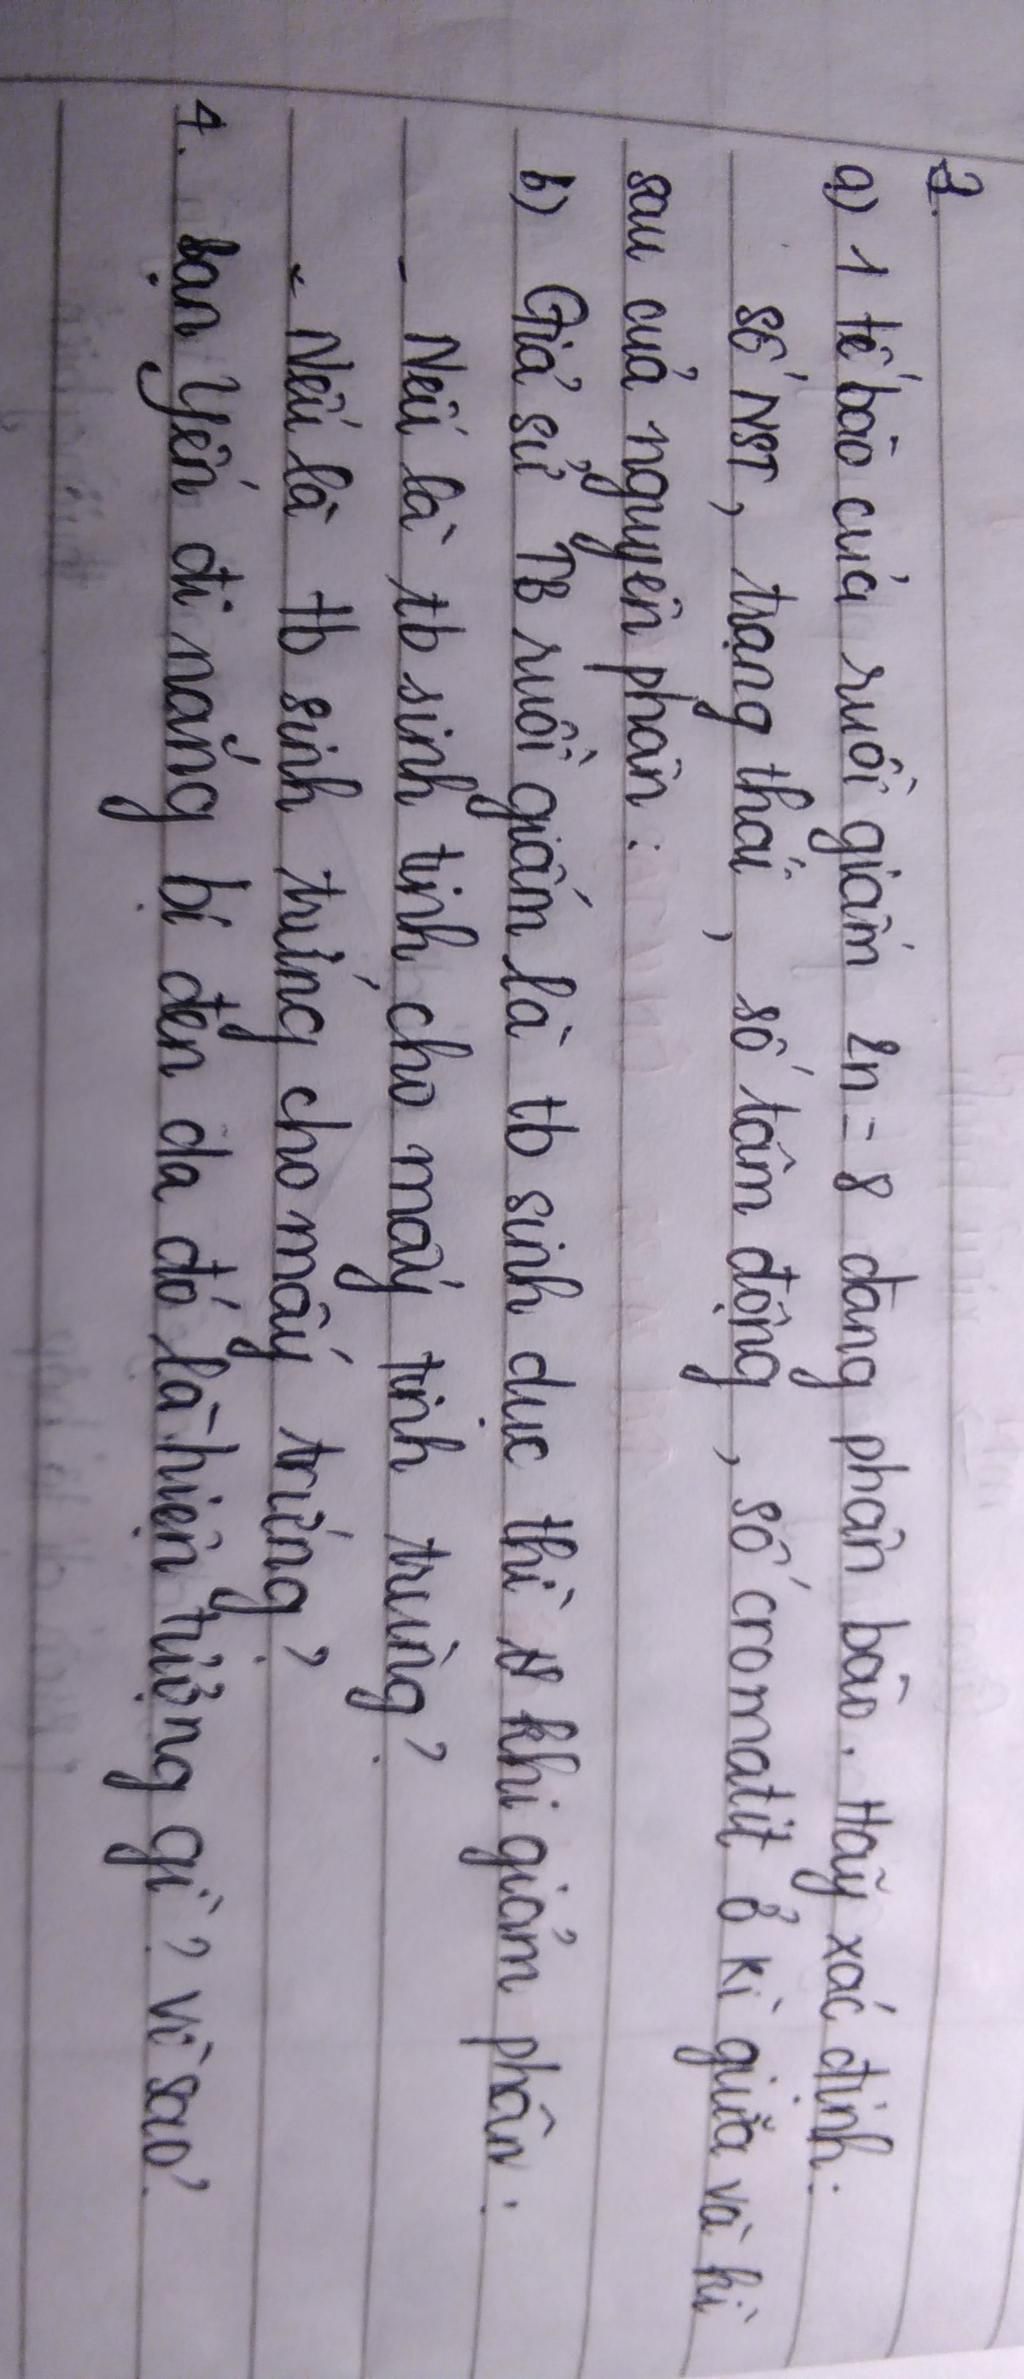 3.
a) 1 tế bào của ruồi giấm 2n = 8 đang phân bào. Hãy xác định:
số NST, trạng thái, số tâm động, số cromatit ở kì giữa và kì
sau của nguyên phân:
b) Giả sử TB ruồi giấm là tb sinh dục thì khi giảm phân:
- Nếu là tb sinh tinh cho mấy tinh trùng?
- Nếu là tb sinh trứng cho mấy trứng?
4. Bạn Yến đi nắng bị đen da đó là hiện tượng gì? vì sao?